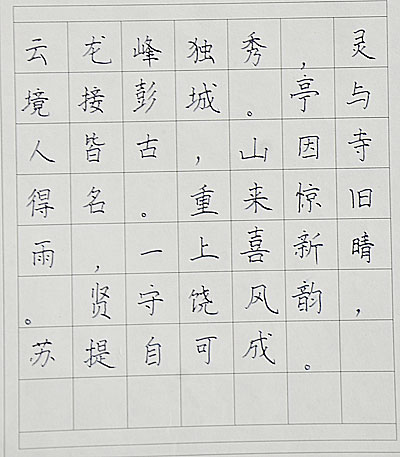 云龙峰独秀，灵
境接彭城。亭与
人皆古，山因寺
得名。重来惊旧
雨，一上喜新晴
。贤守饶风韵，
苏提自可成。